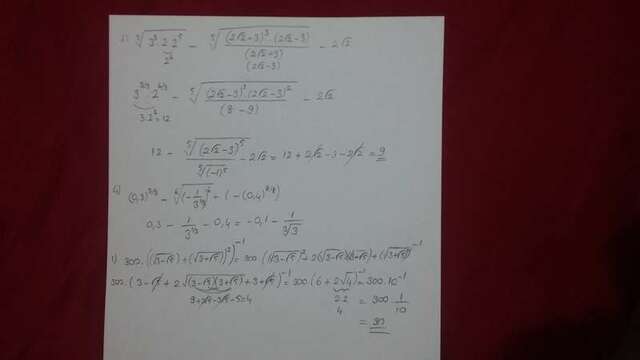 3) ∛(3³·2·2⁵) - ⁵√((2√2-3)³·(2√2-3)/(2√2+3)) - 2√2
2⁶
(2√2-3)
3^(3/3)·2^(6/3) - ⁵√((2√2-3)³(2√2-3)²/(8-9)) - 2√2
3·2²=12
12 - ⁵√((2√2-3)⁵)/⁵√((-1)⁵) - 2√2 = 12+2√2-3-2√2 = 9
(0,3)^(3/3) -
0,3 - 1/3^(1/3) - 0,4 = -0,1 - 1/∛3
1) 300·((√(3-√5)+(√(3+√5))²)⁻¹ = 300·(√(3-√5)²+2(√(3-√5)(3+√5)+(√(3+√5))²)⁻¹
300·(3-√5+2√((3-√5)(3+√5))+3+√5)⁻¹ = 300(6+2√4)⁻¹ = 300·10⁻¹
2·2
4
= 300 1/10
= 30